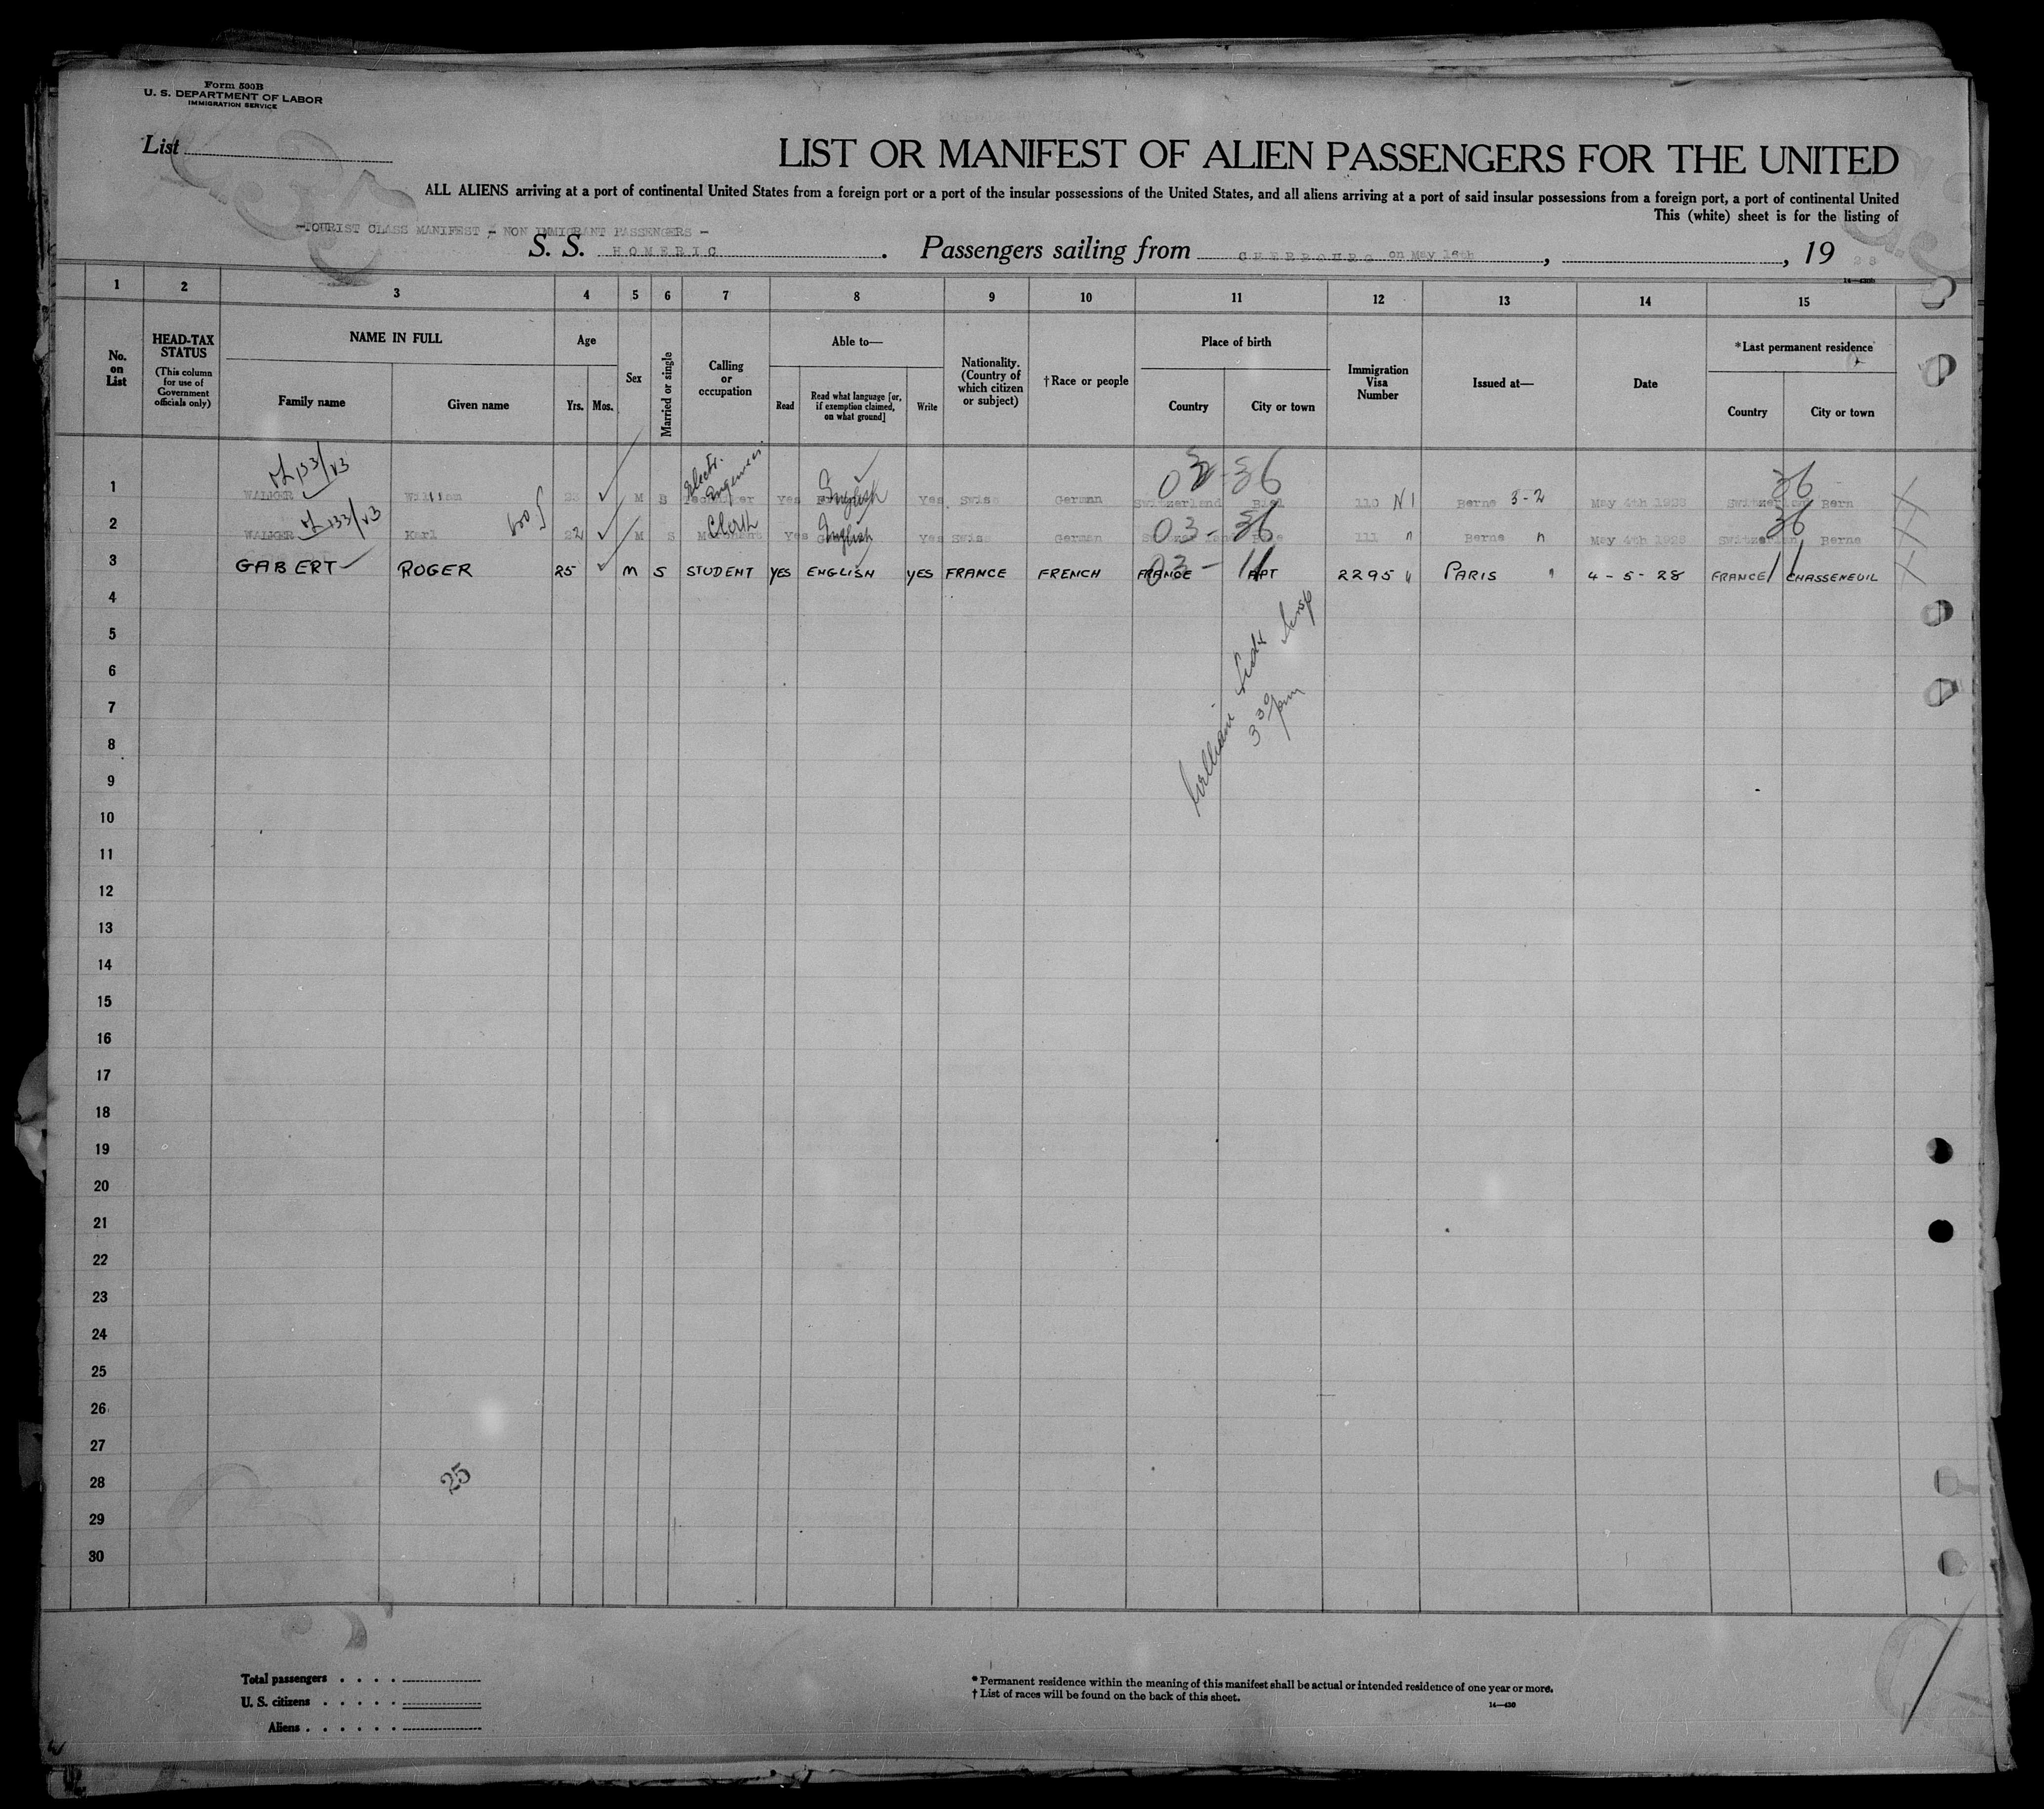 Form 500B
U. S. DEPARTMENT OF LABOR
IMMIGRATION SERVICE
List
LIST OR MANIFEST OF ALIEN PASSENGERS FOR THE UNITED
ALL ALIENS arriving at a port of continental United States from a foreign port or a port of the insular possessions of the United States, and all aliens arriving at a port of said insular possessions from a foreign port, a port of continental United
This (white) sheet is for the listing of
-TOURIST CLASS MANIFEST / NON IMMIGRANT PASSENGERS -
S. S. HOMERIC. Passengers sailing from CHERBOURG on May, , 19 28
14—430b
1 2 3 4 5 6 7 8 9 10 11 12 13 14 15
No. on List
HEAD-TAX STATUS
(This column for use of Government officials only)
NAME IN FULL
Family name Given name
Age
Yrs. Mos.
Sex
Married or single
Calling or occupation
Able to—
Read
Read what language [or, if exemption claimed, on what ground]
Write
Nationality. (Country of which citizen or subject)
†Race or people
Place of birth
Country City or town
Immigration Visa Number
Issued at—
Date
*Last permanent residence
Country City or town
1 WALKER William M Electr. Engineer Yes English Yes Swiss German Switzerland Biel 03-36 110 N1 Berne 3-2 May 4th 1928 Switzerland Bern 36
2 WALKER Karl bro 22 M S Clerk Yes English Yes Swiss German 03-36 111 " Berne " May 4th 1928 Switzerland Berne 36
3 GABERT ROGER 25 M S STUDENT YES ENGLISH YES FRANCE FRENCH FRANCE APT 03-11 2295 " PARIS " 4-5-28 FRANCE CHASSENEUIL 11
4
5
6
7
8
9
10
11
12
13
14
15
16
17
18
19
20
21
22
23
24
25
26
27
28
29
30
3 30 pm
25
Total passengers . . . .
U. S. citizens . . . . .
Aliens . . . . . .
* Permanent residence within the meaning of this manifest shall be actual or intended residence of one year or more.
† List of races will be found on the back of this sheet.
14—430